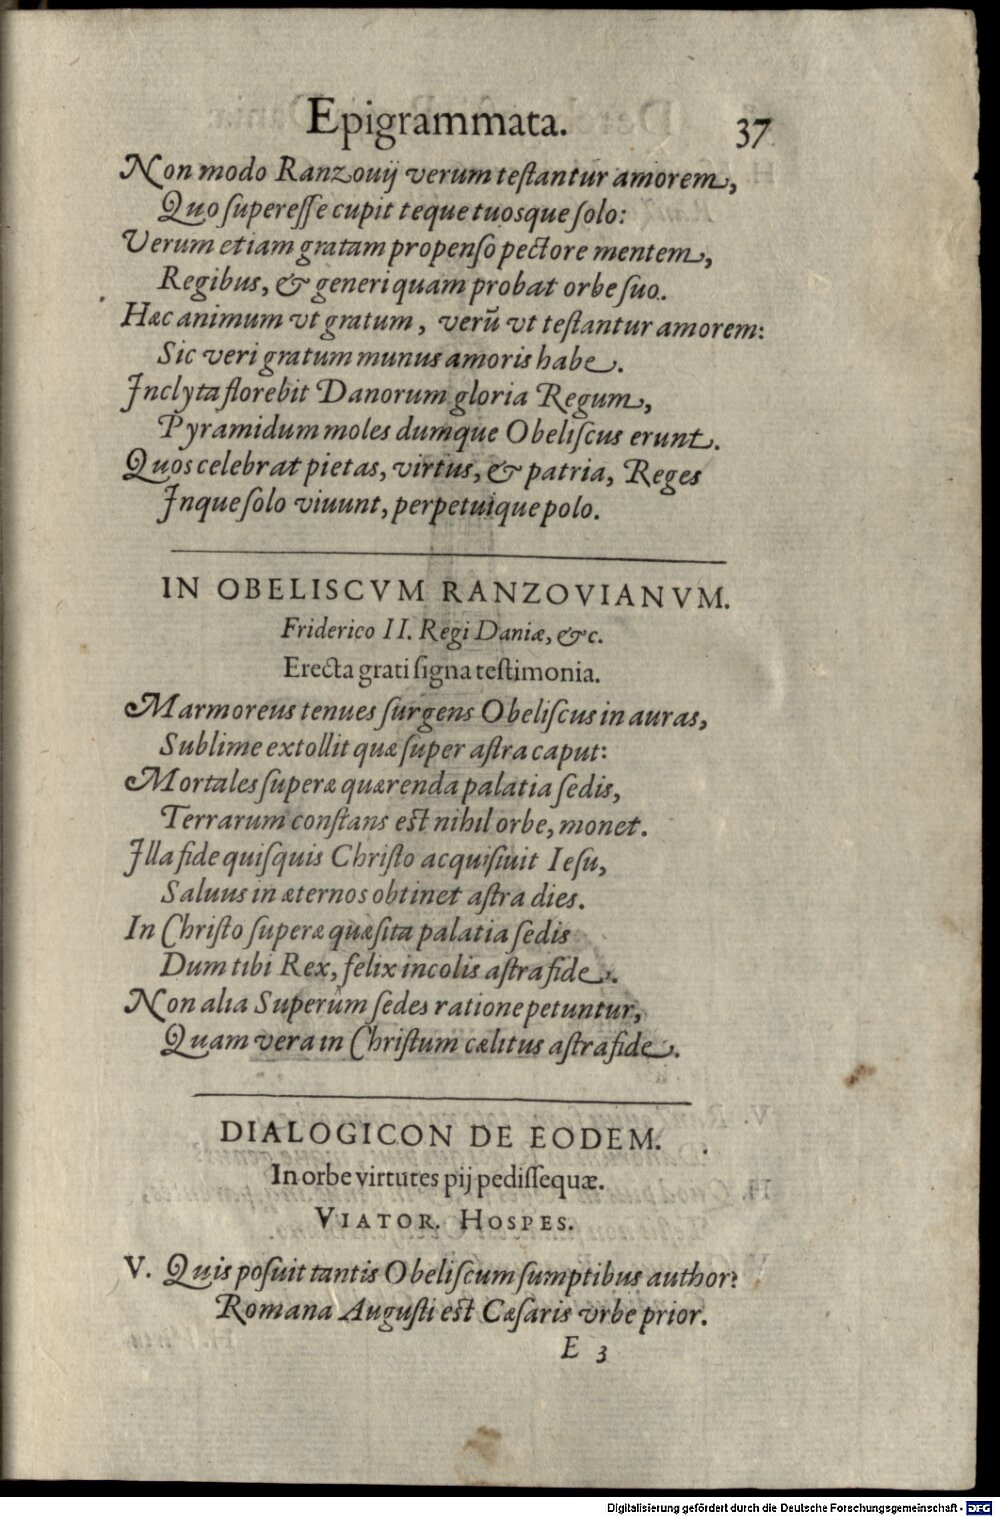 Epigrammata. 37
Non modo Ranzouij verum teſtantur amorem,
Quo ſupereſſe cupit teque tuosque ſolo:
Verum etiam gratam propenſo pectore mentem,
Regibus, & generi quam probat orbe ſuo.
Hæc animum vt gratum, verũ vt teſtantur amorem:
Sic veri gratum munus amoris habe.
Inclyta florebit Danorum gloria Regum,
Pyramidum moles dumque Obeliſcus erunt.
Quos celebrat pietas, virtus, & patria, Reges
Inque ſolo viuunt, perpetuique polo.
IN OBELISCVM RANZOVIANVM.
Friderico II. Regi Daniæ, &c.
Erecta grati ſigna teſtimonia.
Marmoreus tenues ſurgens Obeliſcus in auras,
Sublime extollit quæ ſuper aſtra caput:
Mortales ſuperæ quærenda palatia ſedis,
Terrarum conſtans eſt nihil orbe, monet.
Illa fide quiſquis Chriſto acquiſiuit Ieſu,
Saluus in æternos obtinet aſtra dies.
In Chriſto ſuperæ quæſita palatia ſedis
Dum tibi Rex, felix incolis aſtra fide.
Non alia Superûm ſedes ratione petuntur,
Quam vera in Chriſtum cælitus aſtra fide.
DIALOGICON DE EODEM.
In orbe virtutes pij pediſſequæ.
VIATOR. HOSPES.
V. Quis poſuit tantis Obeliſcum ſumptibus author?
Romana Auguſti eſt Cæſaris vrbe prior.
E 3
Digitalisierung gefördert durch die Deutsche Forschungsgemeinschaft - DFG